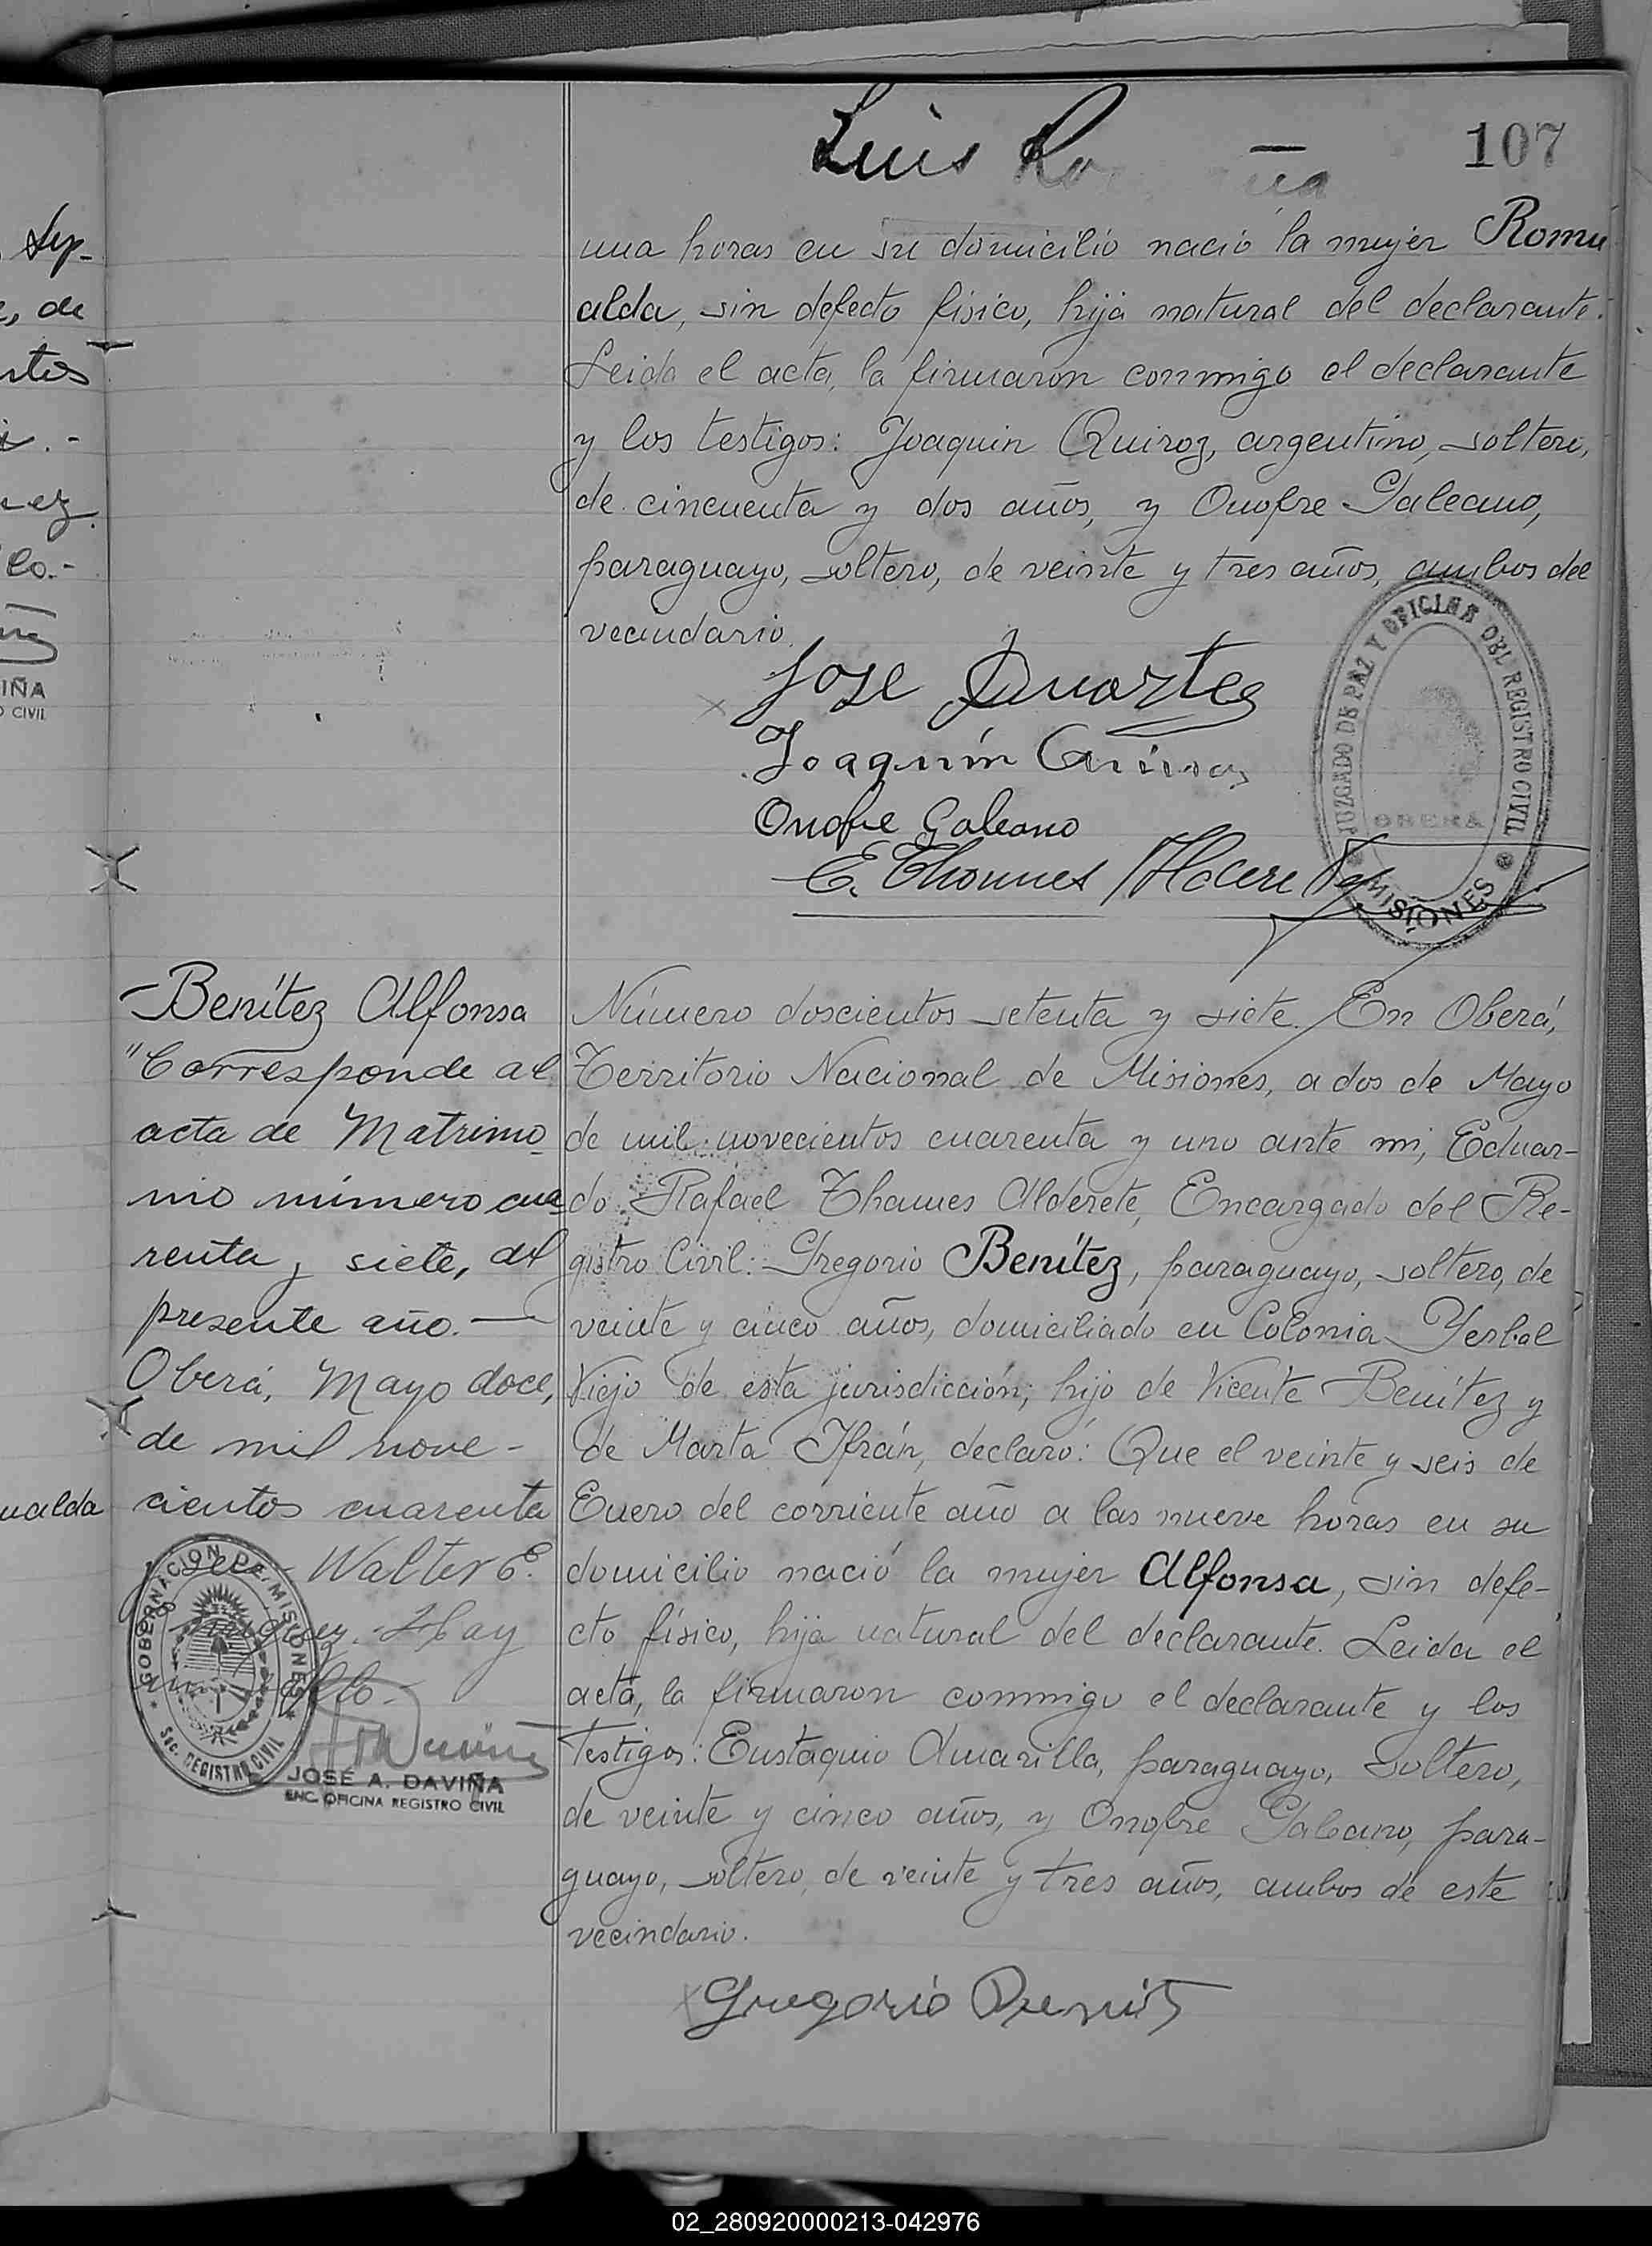 Luis
107
una horas en su domicilio nació la mujer Romu
alda, sin defecto físico, hija natural del declarante.
Leida el acta, la firmaron conmigo el declarante
y los testigos: Joaquin Quiroz, argentino, soltero,
de cincuenta y dos años, y Onofre Galeano,
paraguayo, soltero, de veinte y tres años, ambos del
vecindario.
Jose Duarte
Joaquín
Onofre Galeano
E. Thames Alderete
JUZGADO DE PAZ Y OFICINA DEL REGISTRO CIVIL
OBERA
MISIONES
Sep-
, de
ntos
nez
lo.-
IÑA
O CIVIL
ualda
Benítez Alfonsa
"Corresponde al
acta de Matrimo-
nio número cua-
renta y siete, del
presente año.—
Oberá, Mayo doce,
de mil nove-
cientos cuarenta
Walter E.
Hay
GOBERNACION DE MISIONES
Sec. REGISTRO CIVIL
JOSÉ A. DAVIÑA
ENC. OFICINA REGISTRO CIVIL
Número doscientos setenta y siete. En Oberá,
Territorio Nacional de Misiones, a dos de Mayo
de mil novecientos cuarenta y uno ante mi, Eduar-
do Rafael Thames Alderete, Encargado del Re-
gistro Civil: Gregorio Benítez, paraguayo, soltero, de
veinte y cinco años, domiciliado en Colonia Yerbal
Viejo de esta jurisdicción; hijo de Vicente Benítez y
de Marta Ifrán, declaró: Que el veinte y seis de
Enero del corriente año a las nueve horas en su
domicilio nació la mujer Alfonsa, sin defe-
cto físico, hija natural del declarante. Leida el
acta, la firmaron conmigo el declarante y los
testigos: Eustaquio Amarilla, paraguayo, soltero,
de veinte y cinco años, y Onofre Galeano, para-
guayo, soltero, de veinte y tres años, ambos de este
vecindario.
Gregorio
02_280920000213-042976